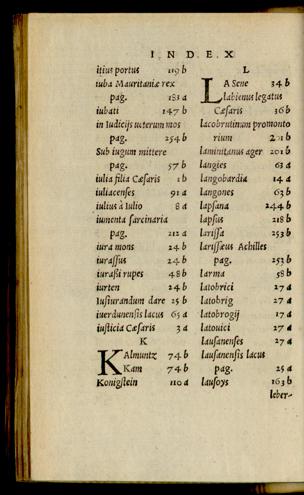 INDEX
itius portus 119 b
iuba Mauritaniæ rex
pag. 183 a
iubati 147 b
in Iudicijs ueterum mos
pag. 254 b
Sub iugum mittere
pag. 57 b
iulia filia Cæsaris 1 b
iuliacenses 91 a
iulius à Iulio 8 a
iumenta sarcinaria
pag. 212 a
iura mons 24 b
iurassus 24 b
iurassi rupes 48 b
iurten 24 b
Iusiurandum dare 25 b
iuerdunensis lacus 65 a
iusticia Cæsaris 3 a
K
KAlmuntz 74 b
Kam 74 b
Konigstein 110 a
L
LA Sene 34 b
Labienus legatus
Cæsaris 36 b
lacobrutinum promonto
rium 201 b
laminitanus ager 201 b
langies 63 a
langobardia 14 a
langones 63 b
lapsana 244 b
lapsus 218 b
larissa 253 b
larissæus Achilles
pag. 253 b
larma 58 b
latobrici 27 a
latobrig 27 a
latobrogij 17 a
latouici 27 a
lausanenses 27 a
lausanensis lacus
pag. 25 a
lausoys 163 b
leber-